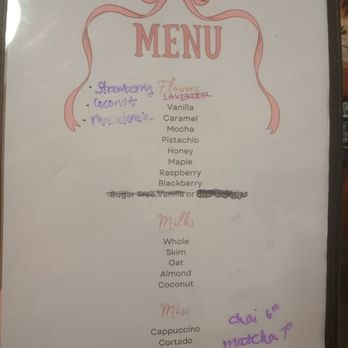 MENU
- Strawberry
- Coconut
- Macadamia
Flavors
LAVENDER
Vanilla
Caramel
Mocha
Pistachio
Honey
Maple
Raspberry
Blackberry
Sugar Free Vanilla or
Milks
Whole
Skim
Oat
Almond
Coconut
Misc
Cappuccino
Cortado
chai 6
matcha 7